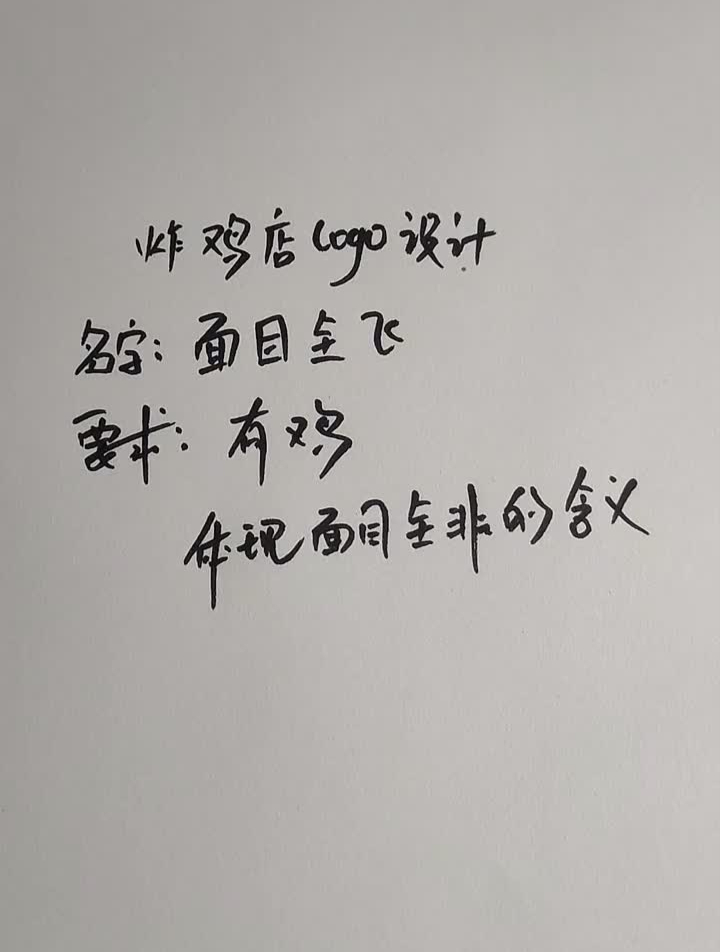 炸鸡店logo设计
名字：面目全飞
要求：有鸡
体现面目全非的含义